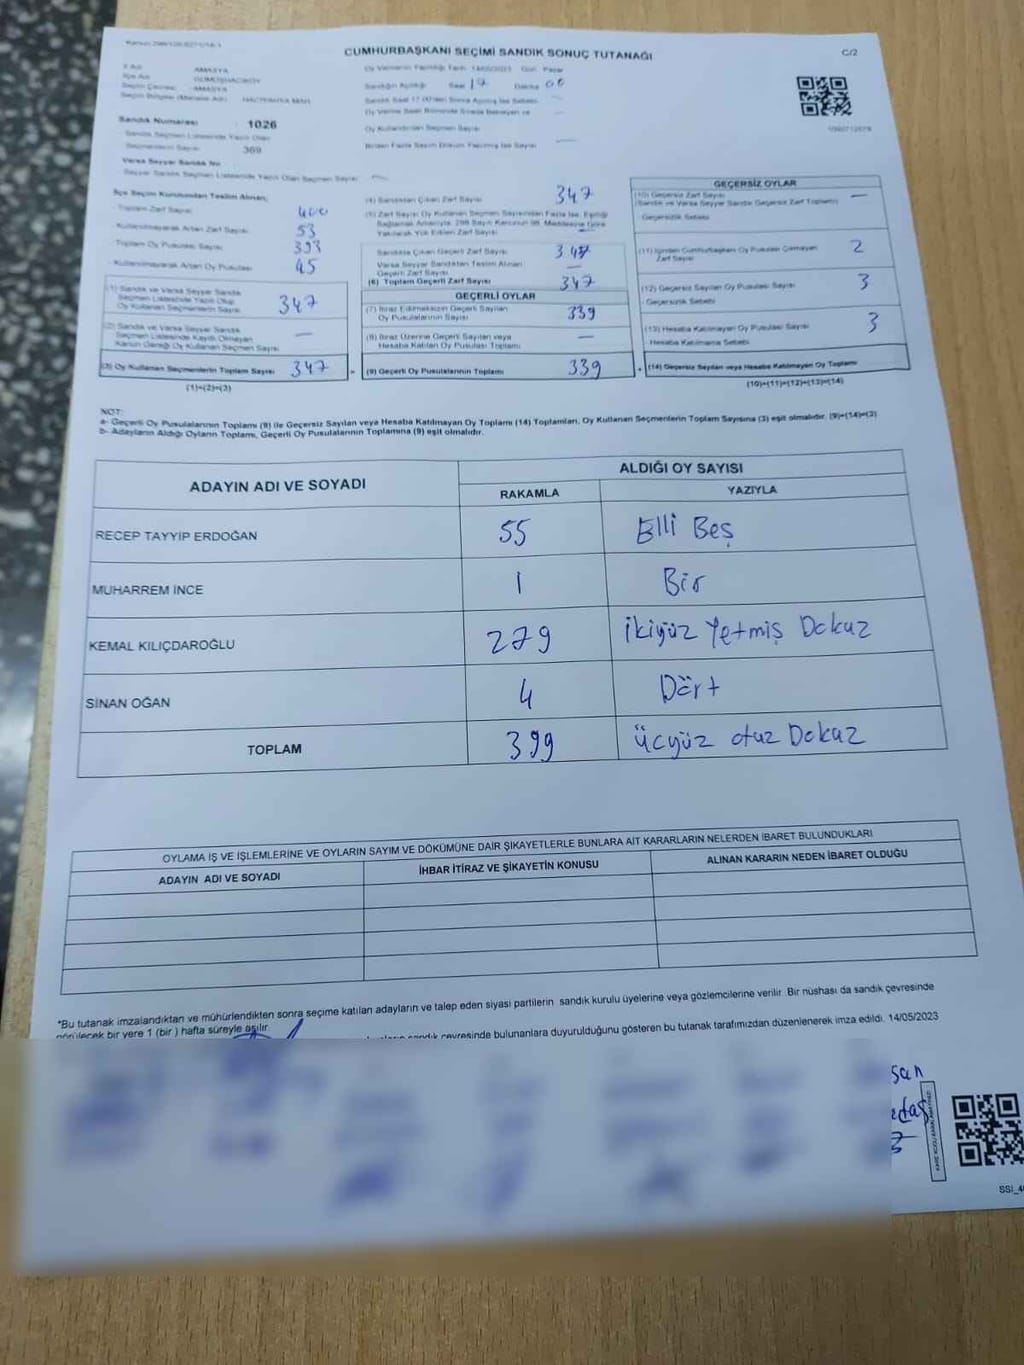 CUMHURBAŞKANI SEÇİMİ SANDIK SONUÇ TUTANAĞI
C/2
AMASYA
AMASYA
Sandık Numarası 1026
369
İlçe Seçim Kurulundan Teslim Alınan;
Toplam Zarf Sayısı 400
Kullanılmayarak Artan Zarf Sayısı 53
Toplam Oy Pusulası Sayısı 393
Kullanılmayarak Artan Oy Pusulası 45
(1) Sandık ve Varsa Seyyar Sandık
Seçmen Listesinde Yazılı Olup
Oy Kullanan Seçmenlerin Sayısı 347
(2) Sandık ve Varsa Seyyar Sandık
Seçmen Listesinde Kaydı Olmayan
Kanun Gereği Oy Kullanan Seçmen Sayısı —
(3) Oy Kullanan Seçmenlerin Toplam Sayısı 347
(1)+(2)=(3)
(4) Sandıktan Çıkan Zarf Sayısı 347
Sandıkta Çıkan Geçerli Zarf Sayısı 347
Varsa Seyyar Sandıktan Teslim Alınan
Geçerli Zarf Sayısı —
(6) Toplam Geçerli Zarf Sayısı 347
GEÇERLİ OYLAR
(7) İtiraz Edilmeksizin Geçerli Sayılan
Oy Pusulalarının Sayısı 339
(8) İtiraz Üzerine Geçerli Sayılan veya
Hesaba Katılan Oy Pusulası Toplamı —
(9) Geçerli Oy Pusulalarının Toplamı 339
GEÇERSİZ OYLAR
(10) Geçersiz Zarf Sayısı —
(Sandık ve Varsa Seyyar Sandık Geçersiz Zarf Toplamı)
Geçersizlik Sebebi
(11) İçinden Cumhurbaşkanı Oy Pusulası Çıkmayan
Zarf Sayısı 2
(12) Geçersiz Sayılan Oy Pusulası Sayısı 3
Geçersizlik Sebebi
(13) Hesaba Katılmayan Oy Pusulası Sayısı 3
Hesaba Katılmama Sebebi
(14) Geçersiz Sayılan veya Hesaba Katılmayan Oy Toplamı
(10)+(11)+(12)+(13)=(14)
NOT:
a- Geçerli Oy Pusulalarının Toplamı (9) ile Geçersiz Sayılan veya Hesaba Katılmayan Oy Toplamı (14) Toplamları, Oy Kullanan Seçmenlerin Toplam Sayısına (3) eşit olmalıdır. (9)+(14)=(3)
b- Adayların Aldığı Oyların Toplamı, Geçerli Oy Pusulalarının Toplamına (9) eşit olmalıdır.
ADAYIN ADI VE SOYADI
ALDIĞI OY SAYISI
RAKAMLA YAZIYLA
RECEP TAYYİP ERDOĞAN 55 Elli Beş
MUHARREM İNCE 1 Bir
KEMAL KILIÇDAROĞLU 279 ikiyüz Yetmiş Dokuz
SİNAN OĞAN 4 Dört
TOPLAM 399 üçyüz otuz Dokuz
OYLAMA İŞ VE İŞLEMLERİNE VE OYLARIN SAYIM VE DÖKÜMÜNE DAİR ŞİKAYETLERLE BUNLARA AİT KARARLARIN NELERDEN İBARET BULUNDUKLARI
ADAYIN ADI VE SOYADI İHBAR İTİRAZ VE ŞİKAYETİN KONUSU ALINAN KARARIN NEDEN İBARET OLDUĞU
*Bu tutanak imzalandıktan ve mühürlendikten sonra seçime katılan adayların ve talep eden siyasi partilerin sandık kurulu üyelerine veya gözlemcilerine verilir. Bir nüshası da sandık çevresinde
görülecek bir yere 1 (bir) hafta süreyle asılır.
sandık çevresinde bulunanlara duyurulduğunu gösteren bu tutanak tarafımızdan düzenlenerek imza edildi. 14/05/2023